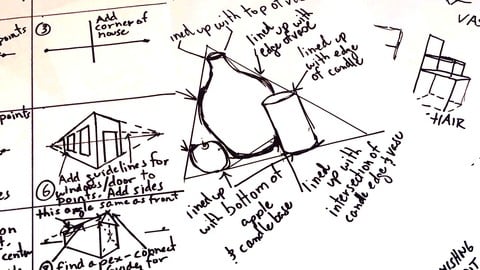 points
③
Add
corner of
house
points
⑥
Add guidelines for
windows/door to
points. Add sides
this angle same as front
find apex - connect
center
for
lined up with top of vase
lined up with
edge of vase
lined up
with edge
of candle
lined up
with bottom of
apple
& candle base
lined up
with
intersection of
candle edge & vase
VAS
HAIR